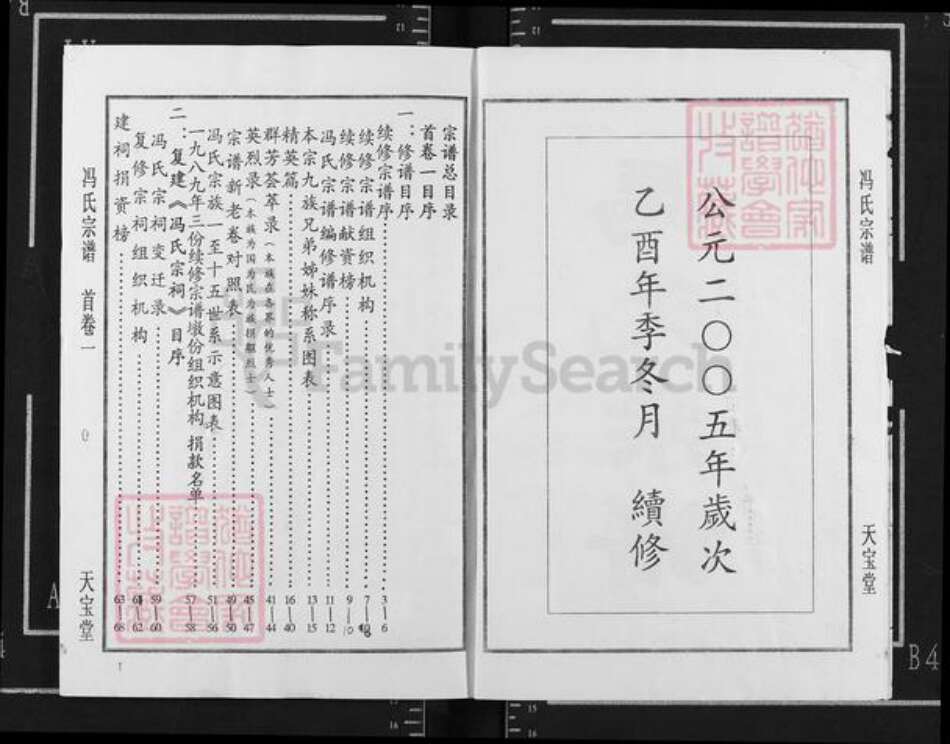 冯氏宗谱
天宝堂
公元二〇〇五年歲次
乙酉年季冬月 續修
宗谱总目录
首卷一目序
一：修谱目序
续修宗谱序 3—6
续修宗谱组织机构 7
续修宗谱献资榜 9—10
冯氏宗谱编修谱序录 11—12
本宗九族兄弟姊妹称系图表 13—15
精英篇 16—40
群芳荟萃录（本族在各界的优秀人士） 41—44
英烈录（本族为国为民为族捐躯烈士） 45—47
宗谱新老卷对照表 49—50
冯氏宗族一至十五世系示意图表 51—56
一九八九年三份续修宗谱墩份组织机构 捐款名单 57—58
二：复建《冯氏宗祠》目序
冯氏宗祠变迁录 59—60
复修宗祠组织机构 61—62
建祠捐资榜 63—68
冯氏宗谱 首卷一
0
天宝堂
1
FamilySearch
B4
15
16